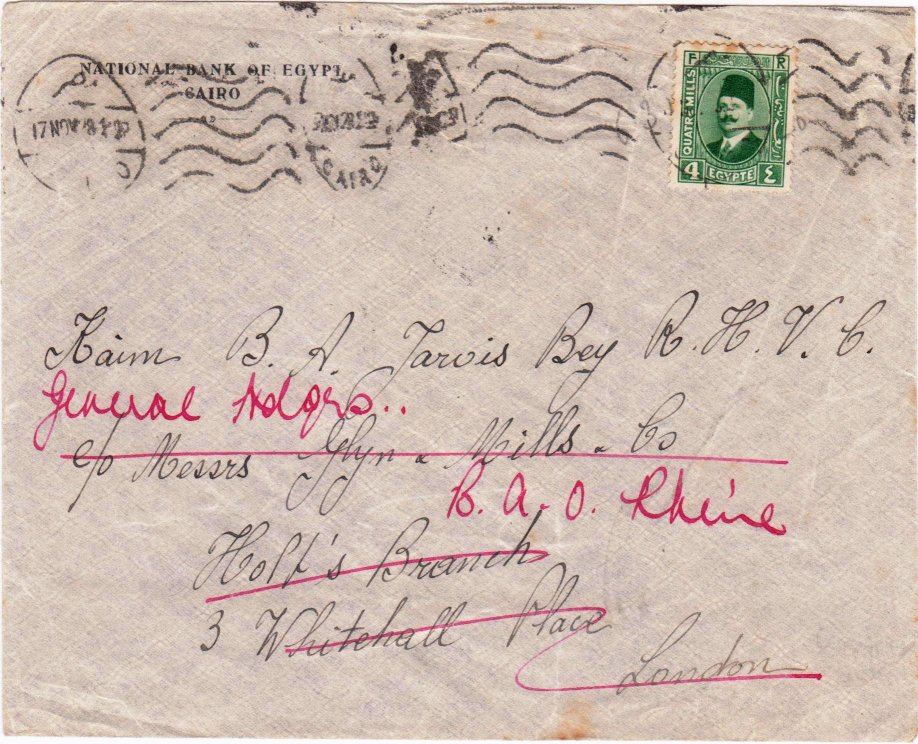 NATIONAL BANK OF EGYPT
CAIRO
17 NOV
CAIRO
F R
QUATRE MILLS
4 EGYPTE ٤
Kaim B. A. Jarvis Bey R. H. V. C.
General Hdqrs..
c/o Messrs Glyn & Mills & Co
B. A. O. Rhine
Holt's Branch
3 Whitehall Place
London